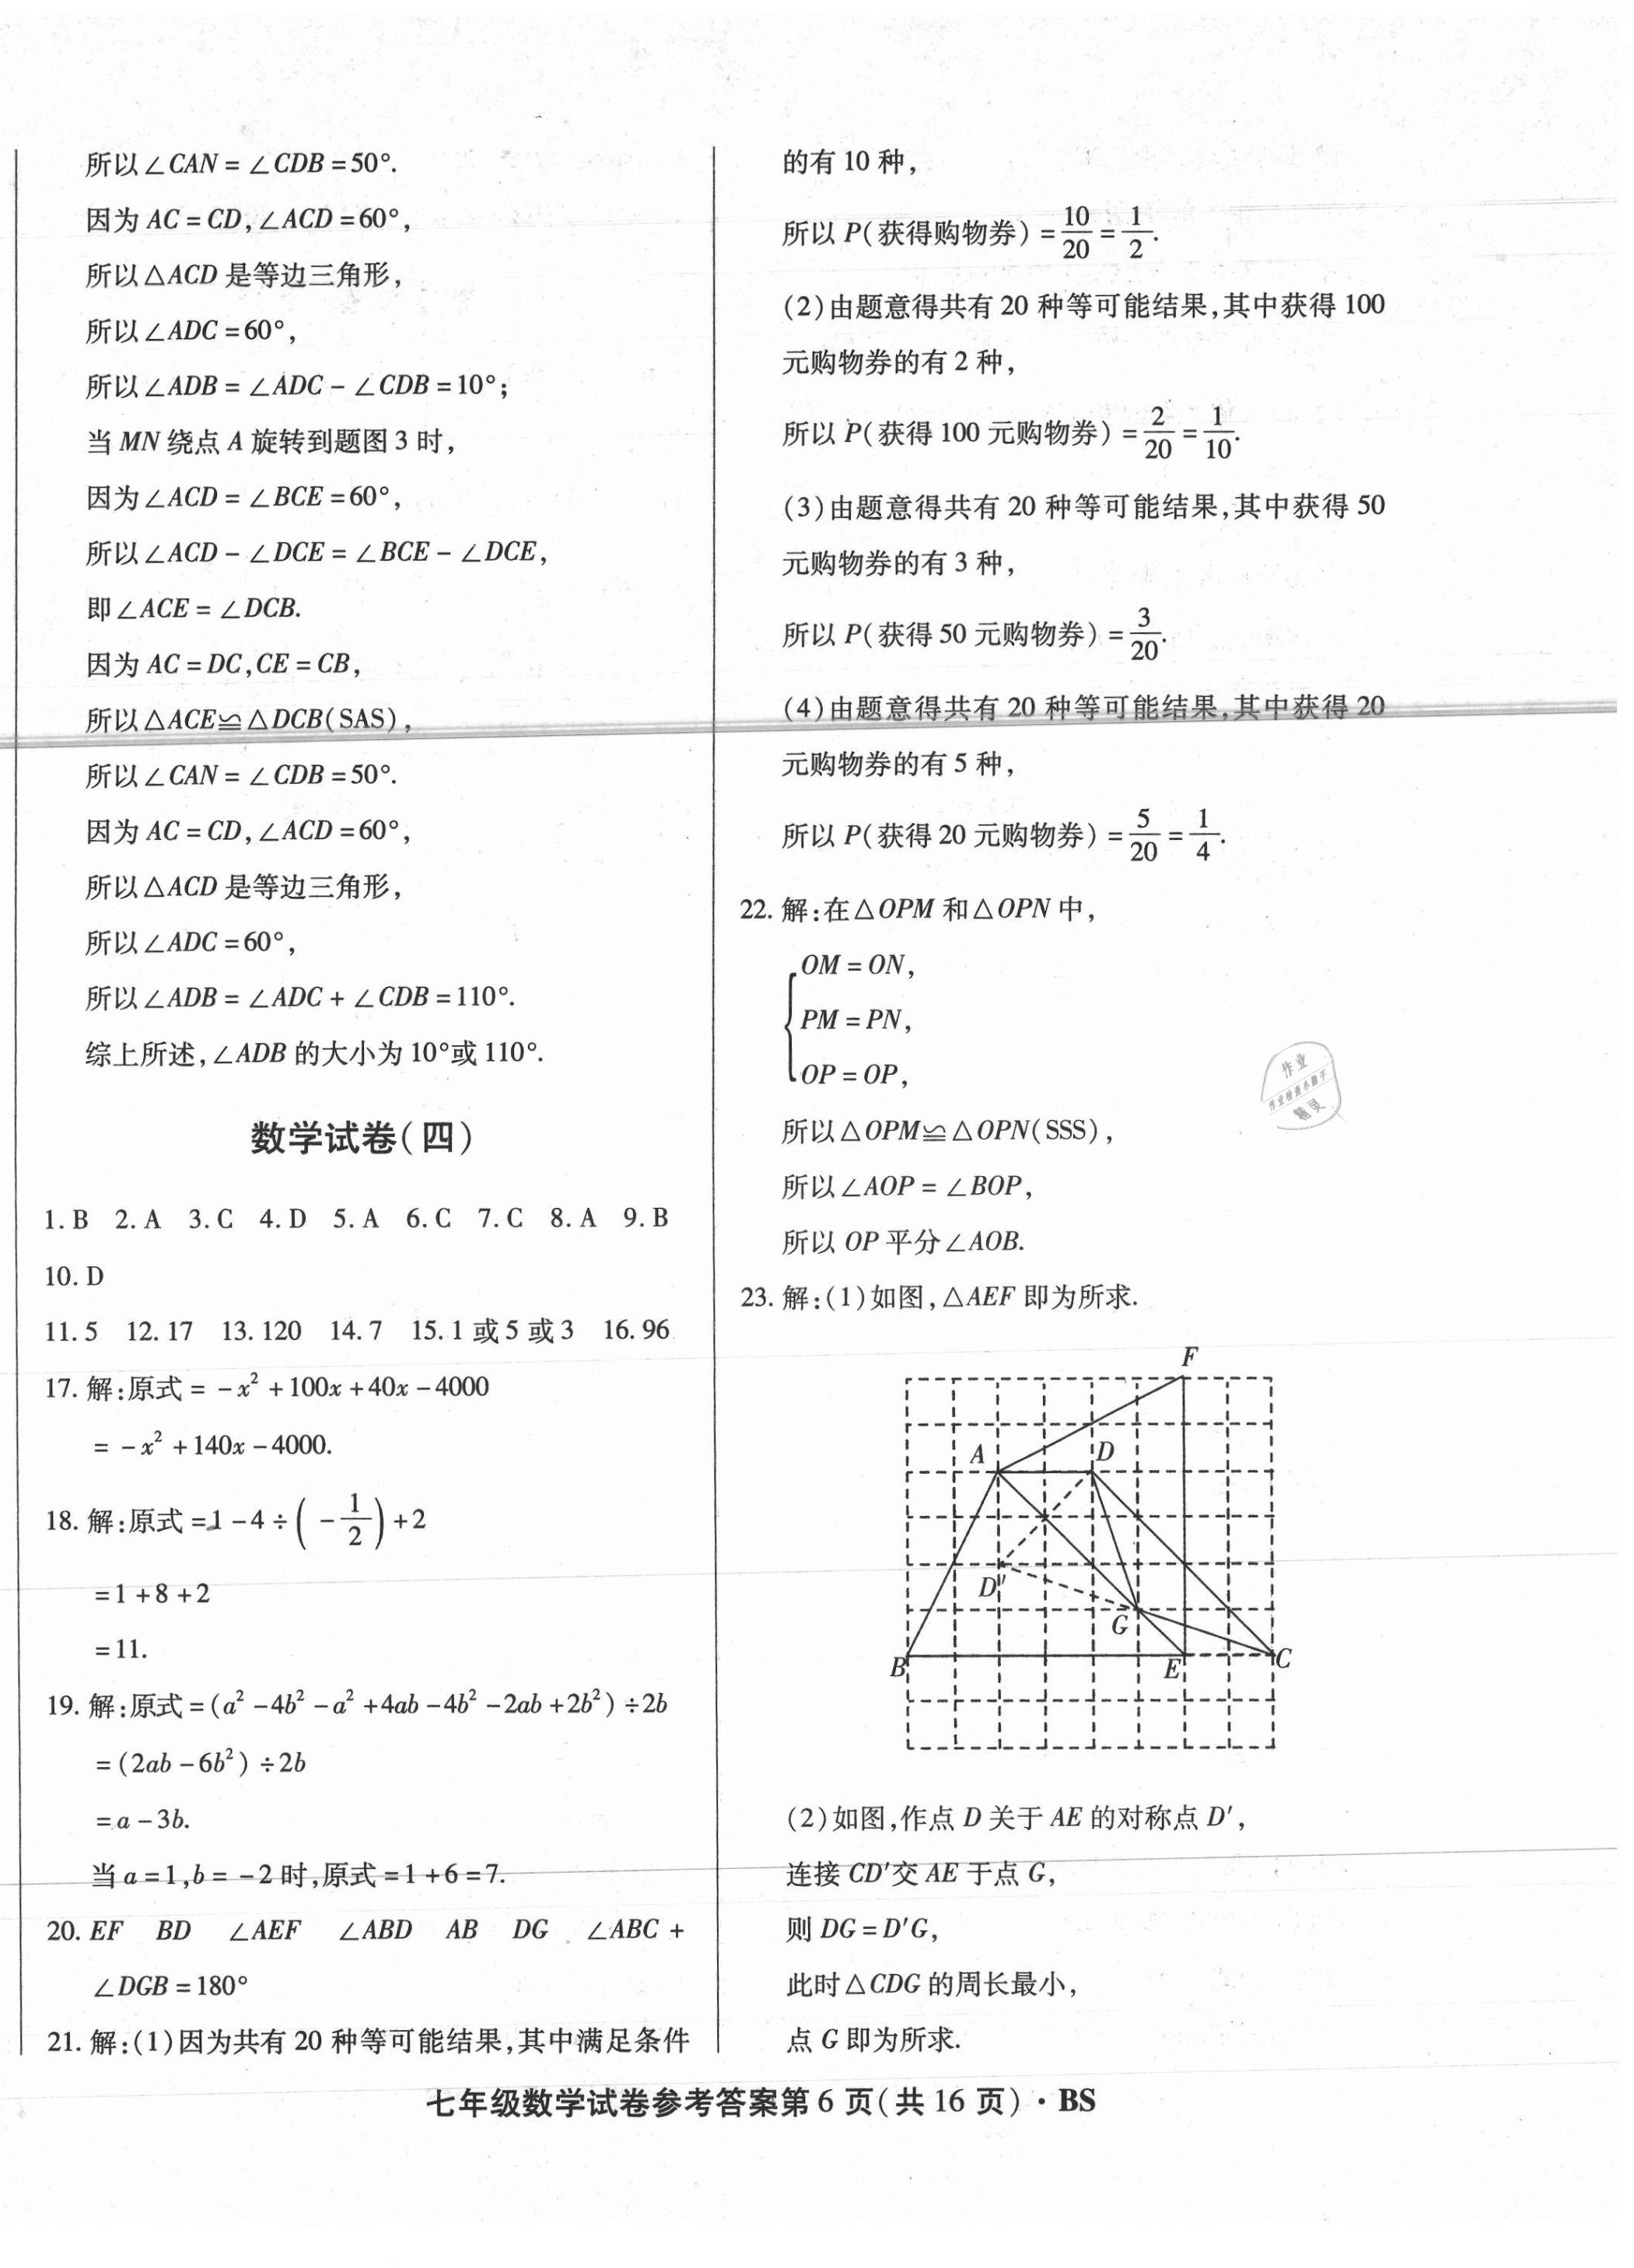 所以∠CAN=∠CDB=50°.
因为AC=CD,∠ACD=60°,
所以△ACD是等边三角形,
所以∠ADC=60°,
所以∠ADB=∠ADC-∠CDB=10°;
当MN绕点A旋转到题图3时,
因为∠ACD=∠BCE=60°,
所以∠ACD-∠DCE=∠BCE-∠DCE,
即∠ACE=∠DCB.
因为AC=DC,CE=CB,
所以△ACE≌△DCB(SAS),
所以∠CAN=∠CDB=50°.
因为AC=CD,∠ACD=60°,
所以△ACD是等边三角形,
所以∠ADC=60°,
所以∠ADB=∠ADC+∠CDB=110°.
综上所述,∠ADB的大小为10°或110°.
数学试卷(四)
1.B 2.A 3.C 4.D 5.A 6.C 7.C 8.A 9.B
10.D
11.5 12.17 13.120 14.7 15.1或5或3 16.96
17.解:原式=-x²+100x+40x-4000
=-x²+140x-4000.
18.解:原式=1-4÷(-1/2)+2
=1+8+2
=11.
19.解:原式=(a²-4b²-a²+4ab-4b²-2ab+2b²)÷2b
=(2ab-6b²)÷2b
=a-3b.
当a=1,b=-2时,原式=1+6=7.
20.EF BD ∠AEF ∠ABD AB DG ∠ABC+
∠DGB=180°
21.解:(1)因为共有20种等可能结果,其中满足条件
的有10种,
所以P(获得购物券)=10/20=1/2.
(2)由题意得共有20种等可能结果,其中获得100
元购物券的有2种,
所以P(获得100元购物券)=2/20=1/10.
(3)由题意得共有20种等可能结果,其中获得50
元购物券的有3种,
所以P(获得50元购物券)=3/20.
(4)由题意得共有20种等可能结果,其中获得20
元购物券的有5种,
所以P(获得20元购物券)=5/20=1/4.
22.解:在△OPM和△OPN中,
OM=ON,
PM=PN,
OP=OP,
所以△OPM≌△OPN(SSS),
所以∠AOP=∠BOP,
所以OP平分∠AOB.
作业
作业检查小助手
精灵
23.解:(1)如图,△AEF即为所求.
F
A D
D'
G
B E C
(2)如图,作点D关于AE的对称点D′,
连接CD′交AE于点G,
则DG=D′G,
此时△CDG的周长最小,
点G即为所求.
七年级数学试卷参考答案第6页(共16页)·BS